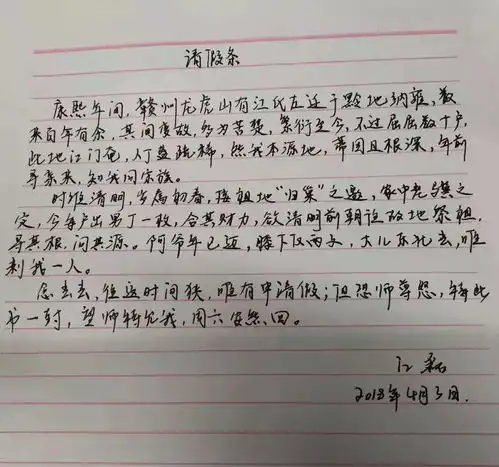 请假条
康熙年间，赣州龙虎山有江氏左迁于黔地纳雍，数
来百年有余，其间变故，多为苦楚，繁衍至今，不过屈屈数十户，
此地江门奄，人丁益疏稀，然我本源地，蒂固且根深，年前
寻亲来，知我同宗族。
时维清明，当属初春，接祖地“归宗”之邀，家中老
定，今年户出男丁一枚，合其财力，欲清明前朝谊故地祭祖，
寻其根，问其源。何爷年已迈，膝下仅两子，大儿东北去，唯
剩我一人。
念去去，往返时间狭，唯有申请假；但恐师尊怒，特此
书一封，望师特允我，周六安然回。
江磊
2018年4月3日.